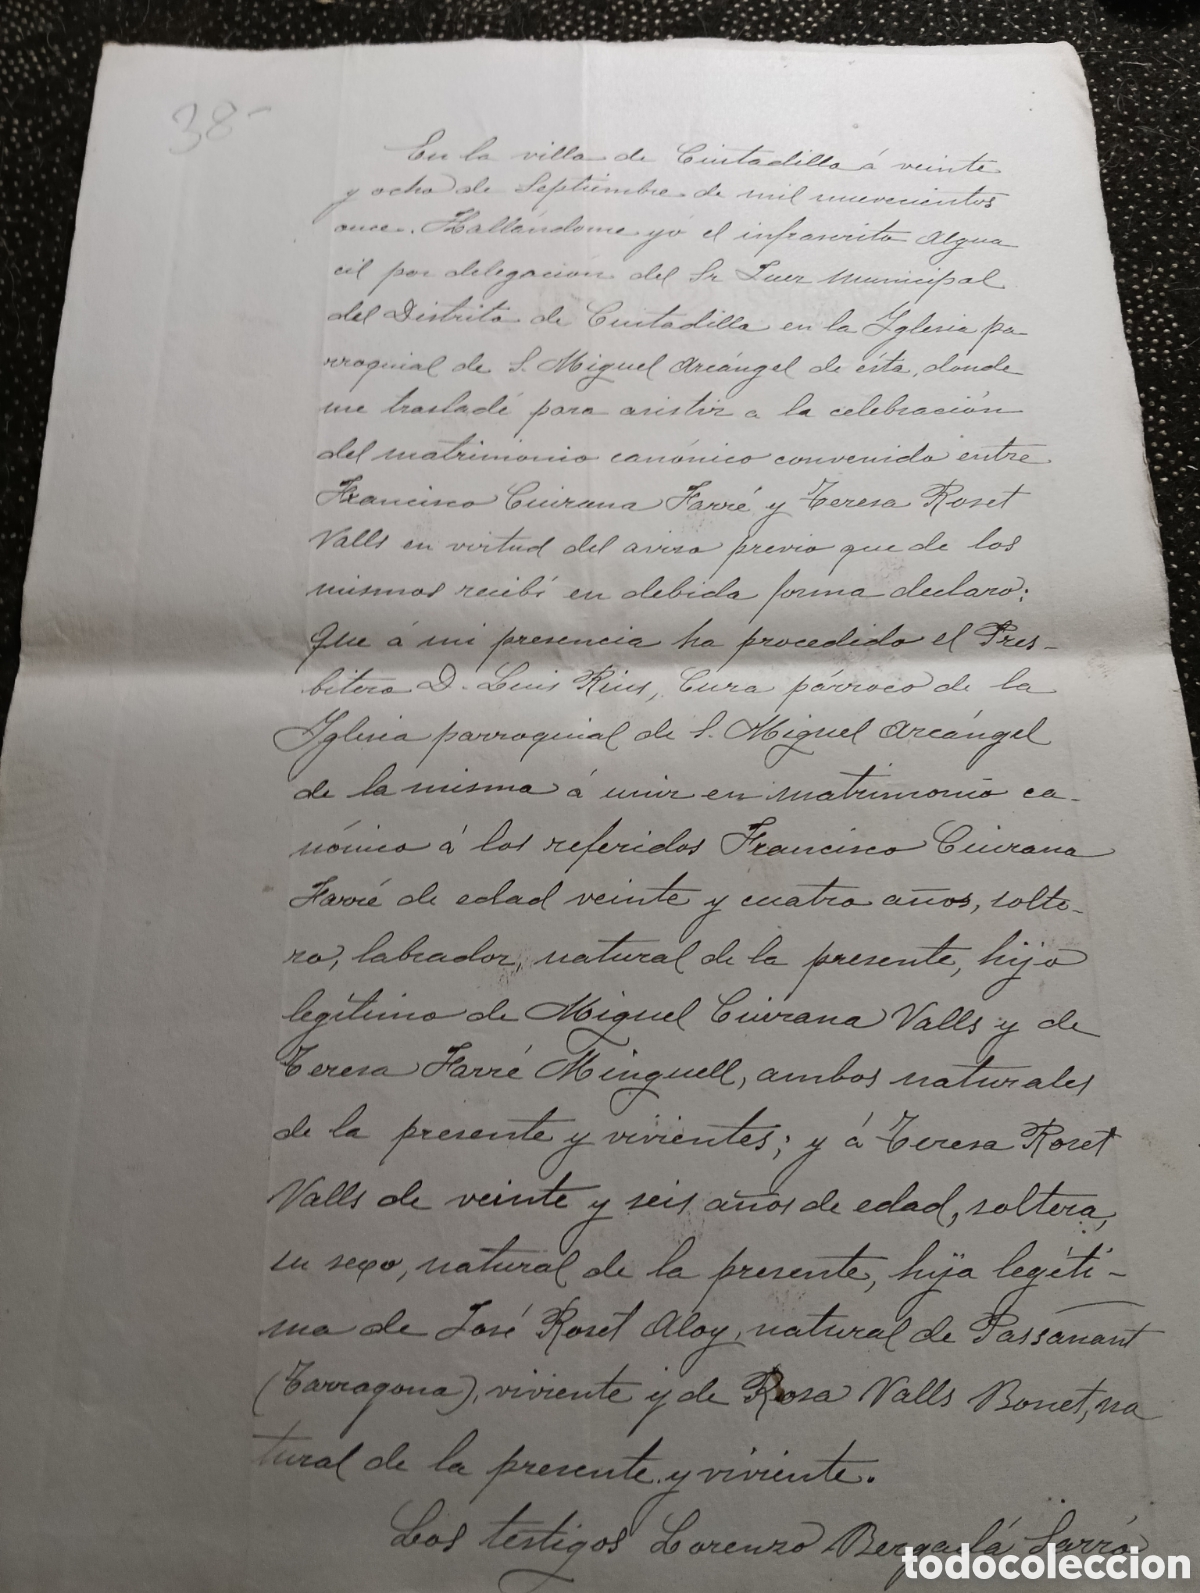 38-
En la villa de Ciutadilla á veinte
y ocho de Septiembre de mil nuevecientos
once. Hallándome yó el infrascrito Algua
cil por delegación del Sr Juez Municipal
del Distrito de Ciutadilla en la Iglesia pa
rroquial de S. Miguel Arcángel de ésta, donde
me trasladé para asistir a la celebración
del matrimonio canónico convenido entre
Francisco Ciurana Farré y Teresa Roset
Valls en virtud del aviso previo que de los
mismos recibí en debida forma declaro:
Que á mi presencia ha procedido el Pres-
bitero D. Luis Rius, Cura párroco de la
Iglesia parroquial de S. Miguel Arcángel
de la misma á unir en matrimonio ca-
nónico á los referidos Francisco Ciurana
Farré de edad veinte y cuatro años, solte-
ro, labrador, natural de la presente, hijo
legítimo de Miguel Ciurana Valls y de
Teresa Farré Minguell, ambos naturales
de la presente y vivientes; y á Teresa Roset
Valls de veinte y seis años de edad, soltera,
su sexo, natural de la presente, hija legíti-
ma de José Roset Aloy, natural de Passanant
(Tarragona), viviente y de Rosa Valls Bonet, na
tural de la presente y viviente.
Los testigos Lorenzo Bergadá Sarró
todocoleccion